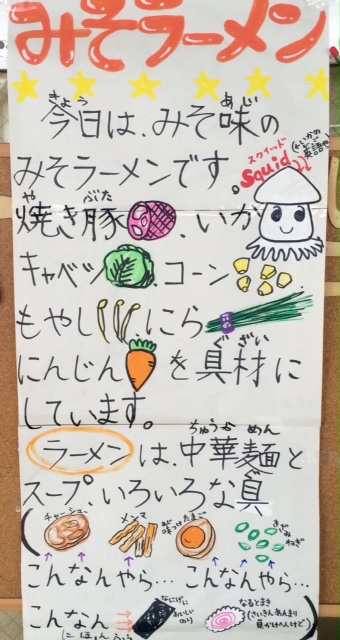 みそラーメン
きょう
あじ
今日は、みそ味の
みそラーメンです。
スクイッド
squid
(←いかの
英語や
や
ぶた
焼き豚、いか
キャベツ、コーン
もやし、にら
ぐざい
にんじんを具材に
しています。
ちゅうか めん
ラーメンは、中華麺と
スープ、いろいろな具
(
チャーシュー
メンマ
味つけたまご
きざみ
ねぎ
こんなんやら… こんなんやら…
こんなん
なにげに
おいしい
のり
なるとまき
(さいきんあんまり
見かけへんけど)